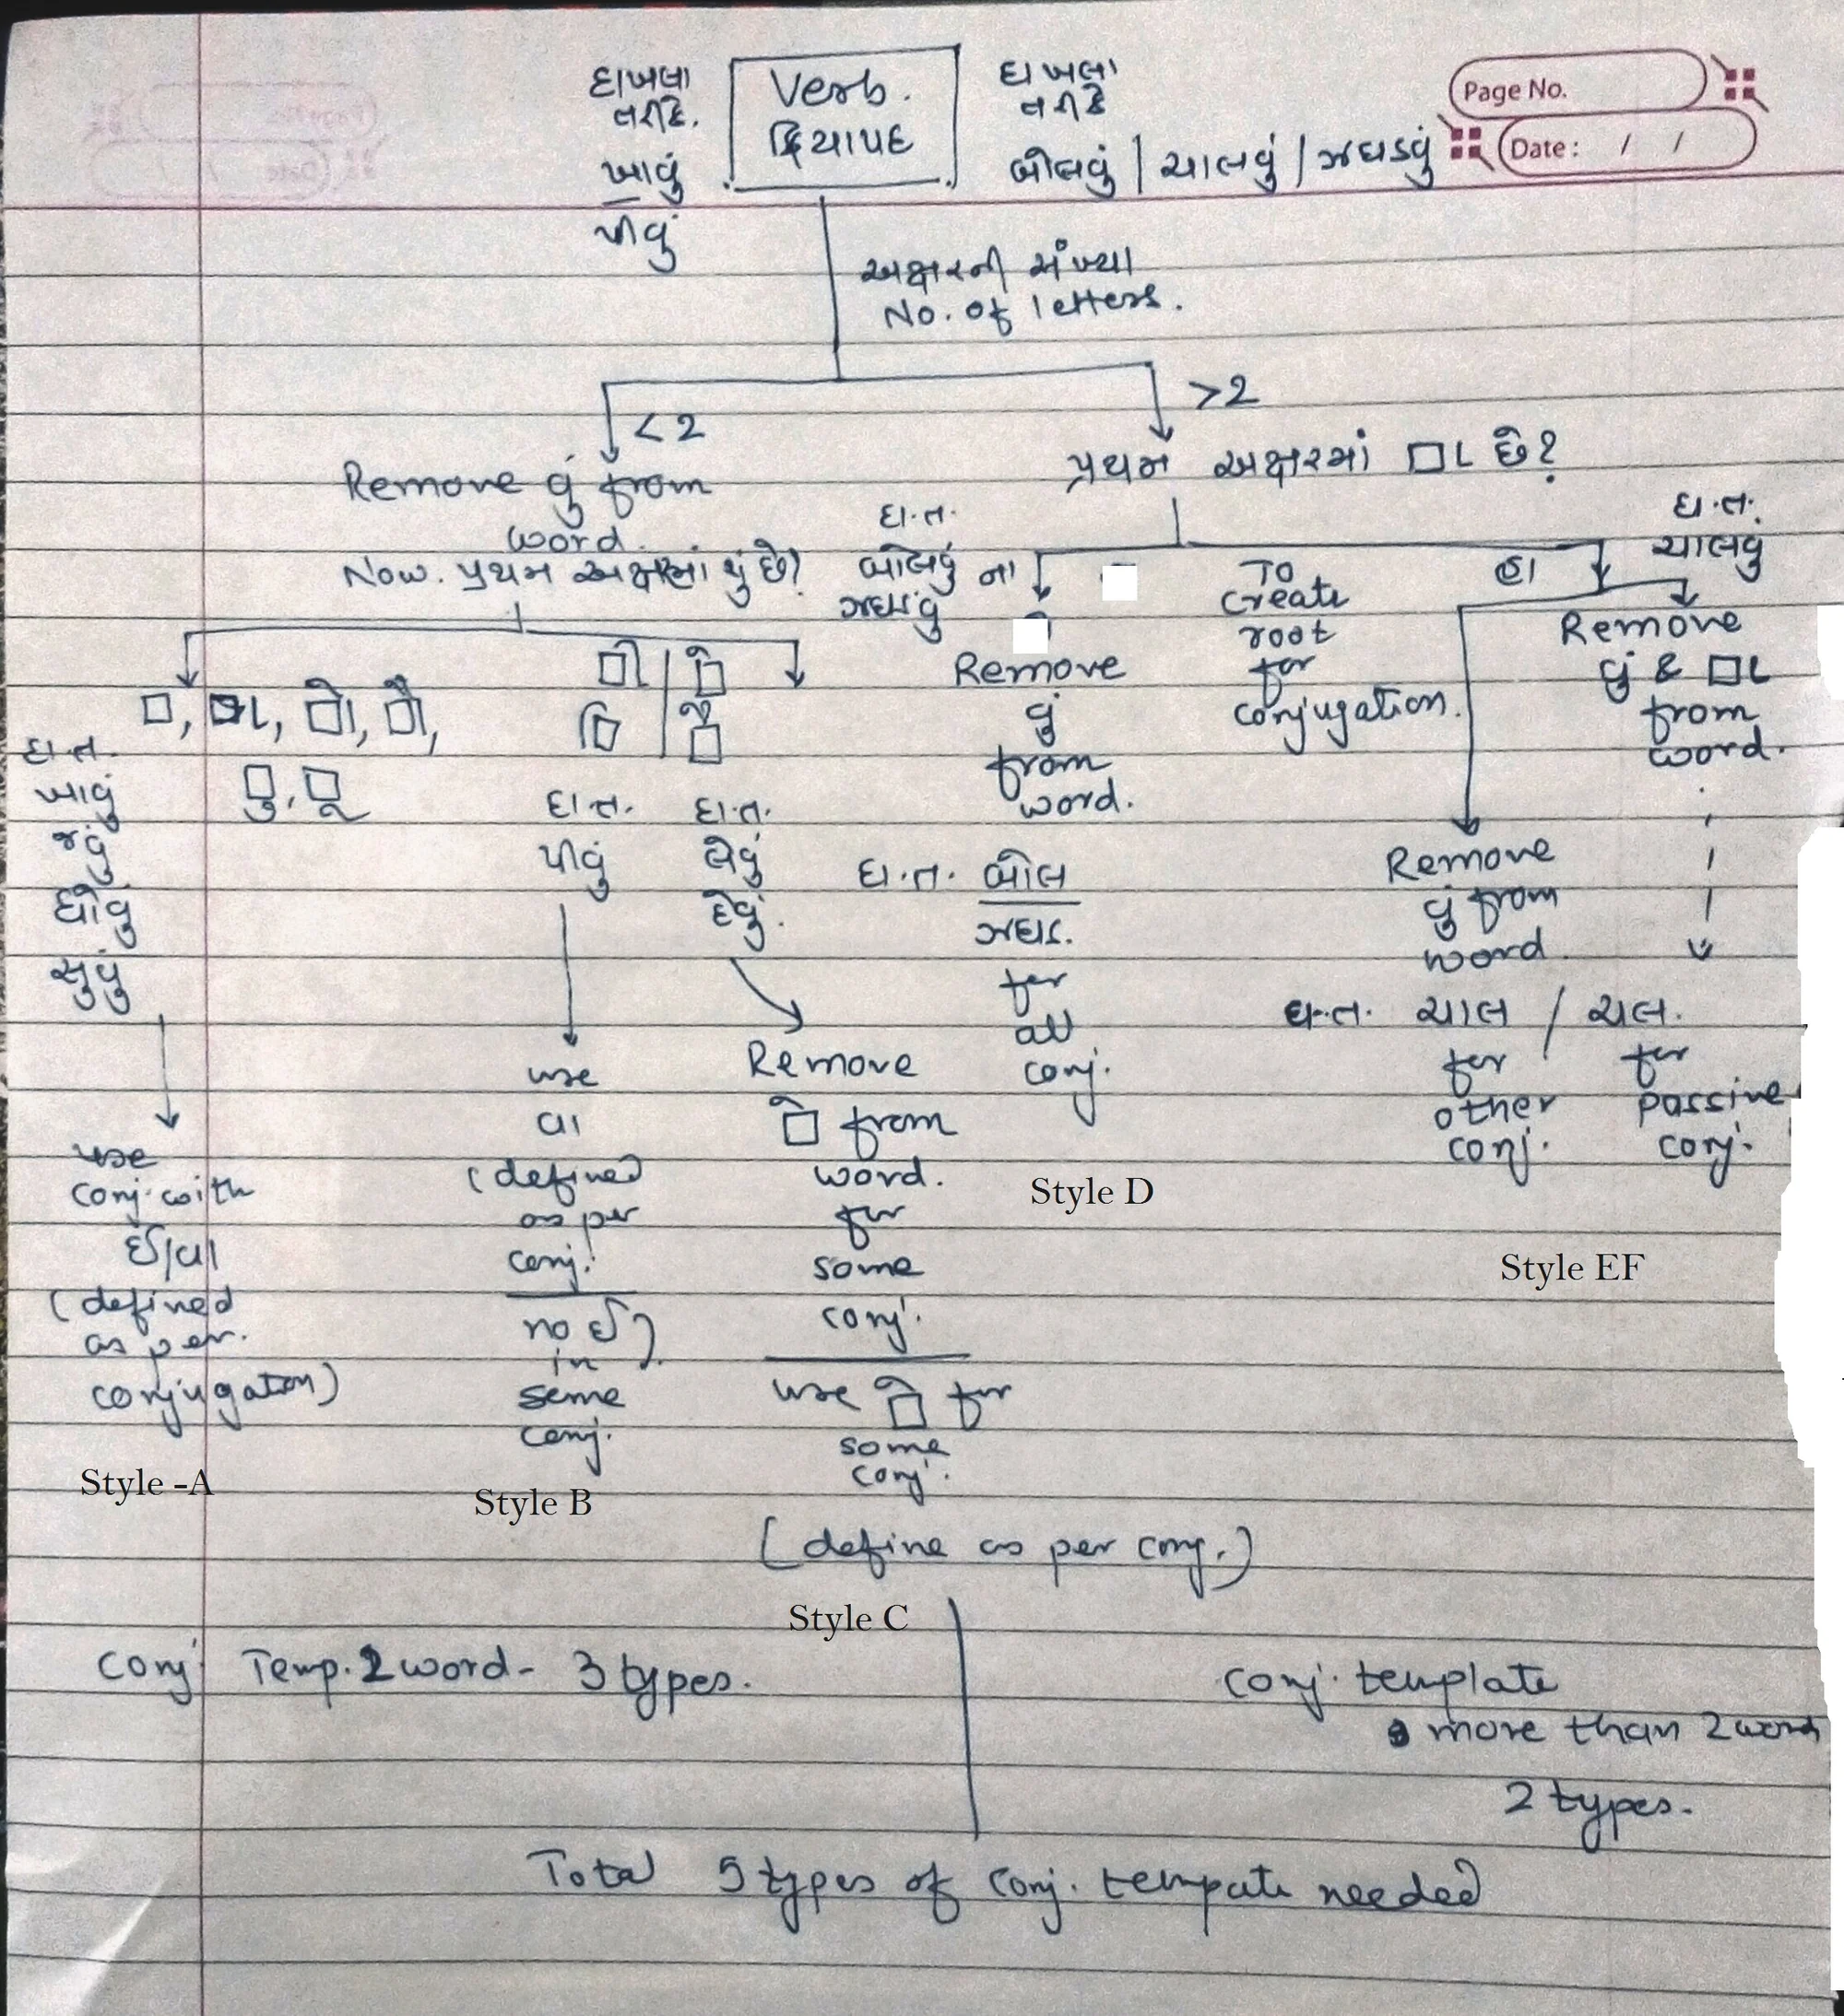 દાખલા
તરીકે.
ખાવું
પીવું
Verb.
ક્રિયાપદ
દાખલા
તરીકે
બોલવું / ચાલવું / ઝઘડવું
Page No.
Date: / /
અક્ષરની સંખ્યા
No. of letters.
<2
>2
Remove વું from
word.
Now. પ્રથમ અક્ષરમાં શું છે?
પ્રથમ અક્ષરમાં □ા છે?
□, □ા, □ો, □ૌ,
□ુ, □ૂ
□ી
□િ
□ે
□ૈ
દા.ત.
ખાવું
ધોવું
સુવું
use
conj. with
ઈ/વા
(defined
as per.
conjugation)
Style -A
દા.ત.
પીવું
use
વા
(defined
as per
conj.
no ઈ)
in
some
conj.
Style B
દા.ત.
લેવું
દેવું.
Remove
□ે from
word.
for
some
conj.
use □ે for
some
conj.
(define as per conj.)
Style C
દા.ત.
બોલવું
ના
Remove
વું
from
word.
દા.ત. બોલ
ઝઘડ.
for
all
conj.
Style D
To
create
root
for
conjugation.
હા
દા.ત.
ચાલવું
Remove
વું & □ા
from
word.
Remove
વું from
word.
દા.ત. ચાલ / ચલ.
for
other
conj.
for
passive
conj.
Style EF
Conj Temp. 2 word - 3 types.
Conj. template
more than 2 word
2 types.
Total 5 types of conj. tempate needed